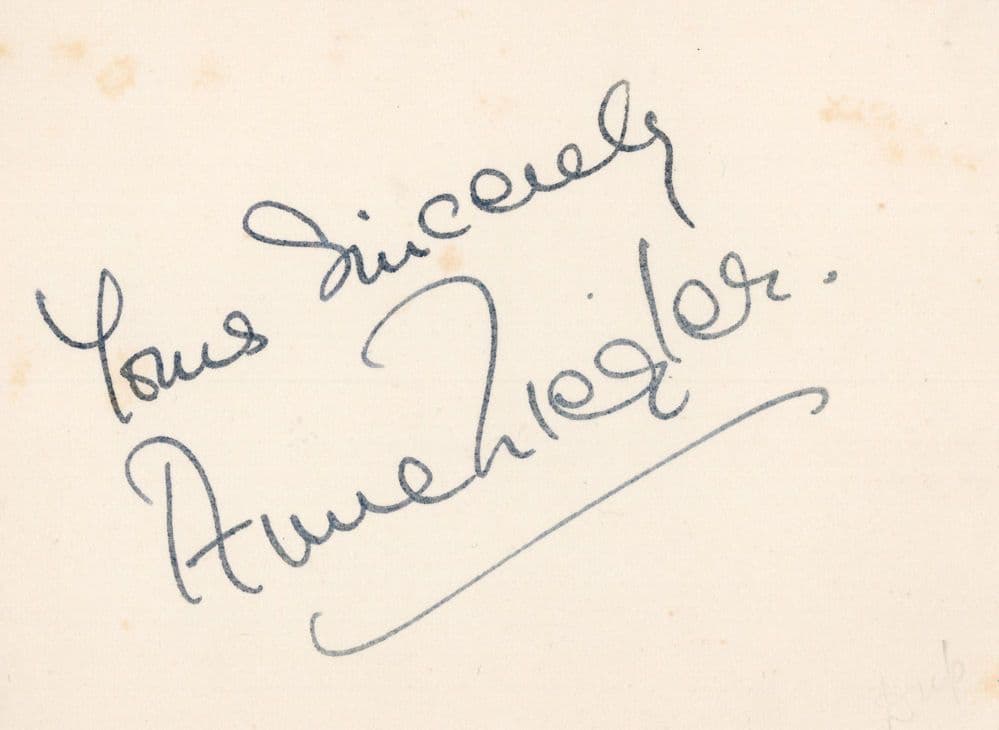 Yours Sincerely
Anne Ziegler.